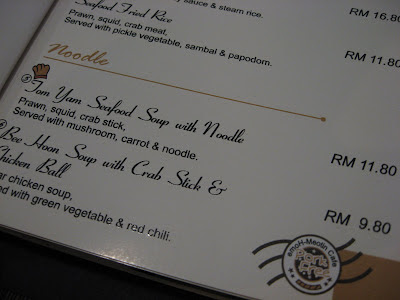 sauce & steam rice.
Seafood Fried Rice
RM 16.80
Prawn, squid, crab meat,
Served with pickle vegetable, sambal & papodom.
RM 11.80
Noodle
Tom Yam Seafood Soup with Noodle
Prawn, squid, crab stick,
Served with mushroom, carrot & noodle.
RM 11.80
Bee Hoon Soup with Crab Stick &
Chicken Ball
chicken soup,
with green vegetable & red chili.
RM 9.80